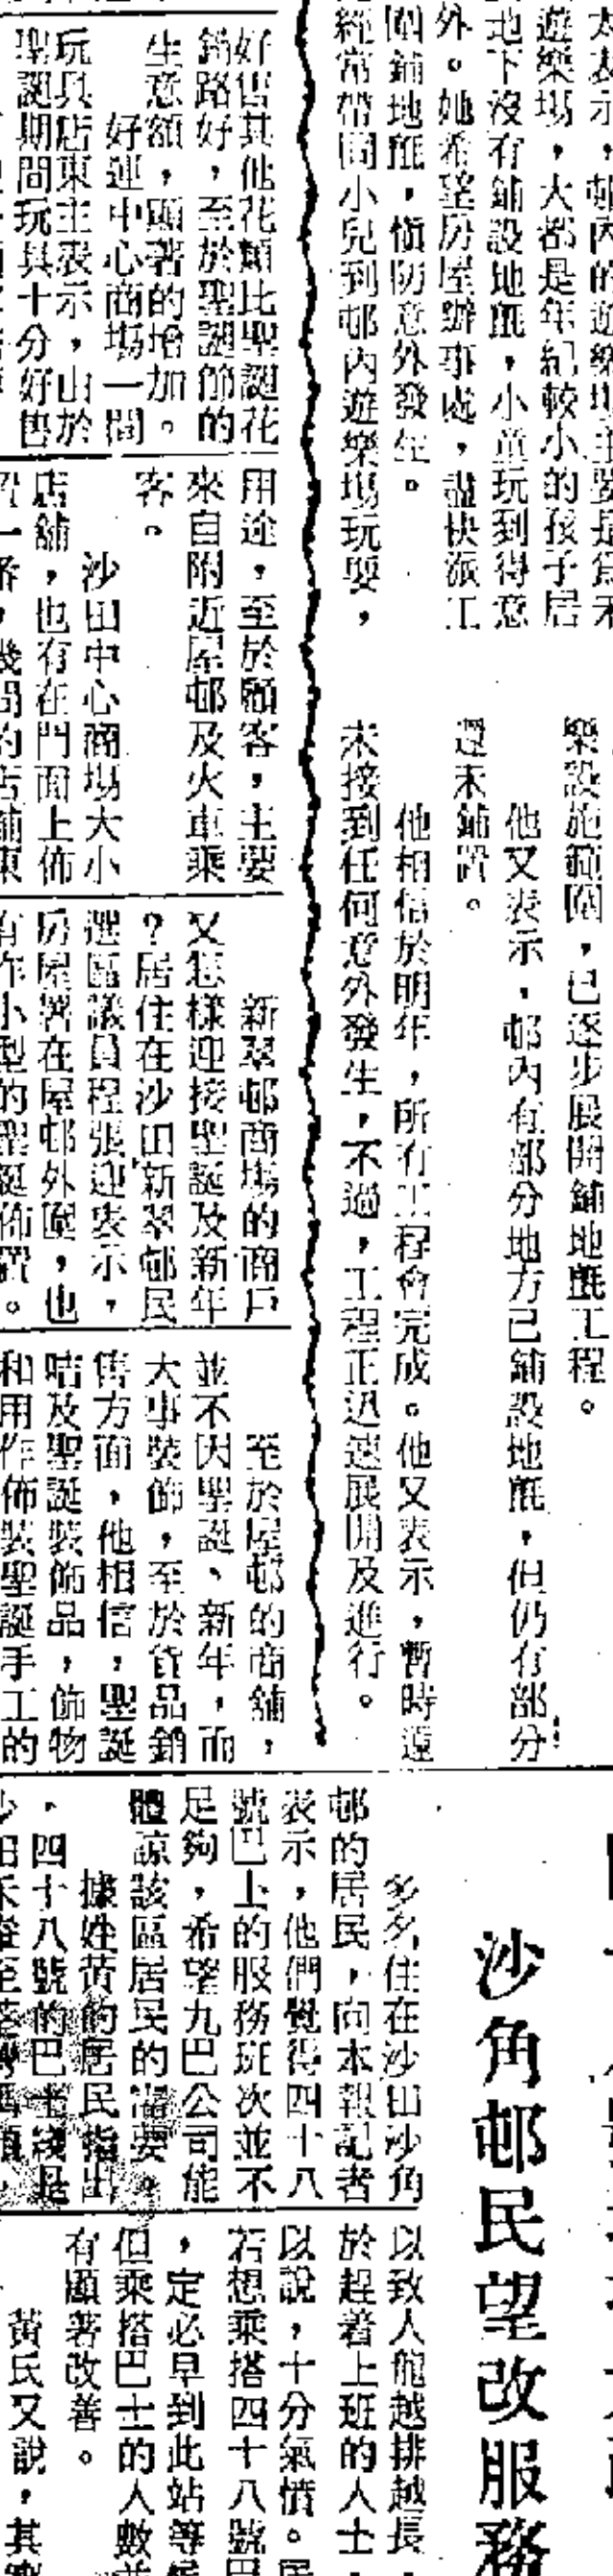 太表示，邨內的遊樂場主要是為未
遊樂場，大都是年紀較小的孩子居
地下沒有鋪設地氈，小童玩到得意
外。她希望房屋辦事處，盡快派工
圍鋪地氈，慎防意外發生。
經常帶同小兒到邨內遊樂場玩耍，
樂設施範圍，已逐步展開鋪地氈工程。
他又表示，邨內有部分地方已鋪設地氈，但仍有部分
還未鋪置。
他相信於明年，所有工程會完成。他又表示，暫時還
未接到任何意外發生，不過，工程正迅速展開及進行。
好售其他花類比聖誕花
銷路好，至於聖誕節的
生意額，顯著的增加。
好運中心商場一間
玩具店東主表示，由於
聖誕期間玩具十分好售
用途，至於顧客，主要
來自附近屋邨及火車乘
客。
沙田中心商場大小
店舖，也有在門面上佈
置一番，幾間的店舖東
新翠邨商場的商戶
又怎樣迎接聖誕及新年
？居住在沙田新翠邨民
選區議員程張迎表示，
房屋署在屋邨外圍，也
有作小型的聖誕佈置。
至於屋邨的商舖，
並不因聖誕、新年，而
大事裝飾，至於貨品銷
售方面，他相信，聖誕
咭及聖誕裝飾品，飾物
和用作佈裝聖誕手工的
沙角邨民望改服務
多名住在沙田沙角
邨的居民，向本報記者
表示，他們覺得四十八
號巴上的服務班次並不
足夠，希望九巴公司能
體諒該區居民的需要。
據姓黃的居民指出
，四十八號的巴士綫是
以致人龍越排越長，
於趕着上班的人士，
以說，十分氣憤。居
若想乘搭四十八號巴
，定必早到此站等候
但乘搭巴士的人數並
有顯著改善。
黃氏又說，其實